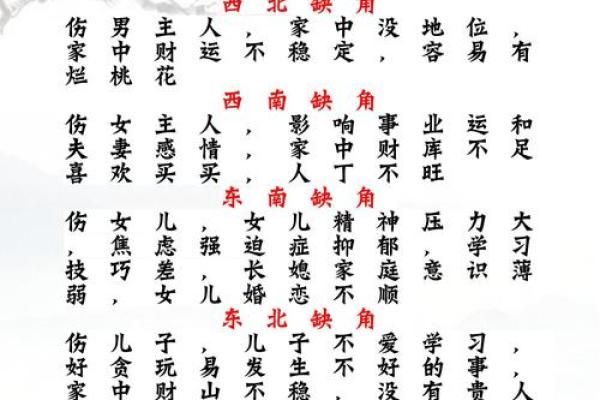 西北缺角
伤男主人，家中没地位，
家中财运不稳定，容易有
烂桃花
西南缺角
伤女主人，影响事业运和
夫妻感情，家中财库不足
喜欢买买，人丁不旺
东南缺角
伤女儿，女儿精神压力大
，焦虑强迫症抑郁，学习
技巧差，长媳家庭意识薄
弱，女儿婚恋不顺
东北缺角
伤儿子，儿子不爱学习，
好贪玩易发生不好的事，
家中财山不稳，没有贵人